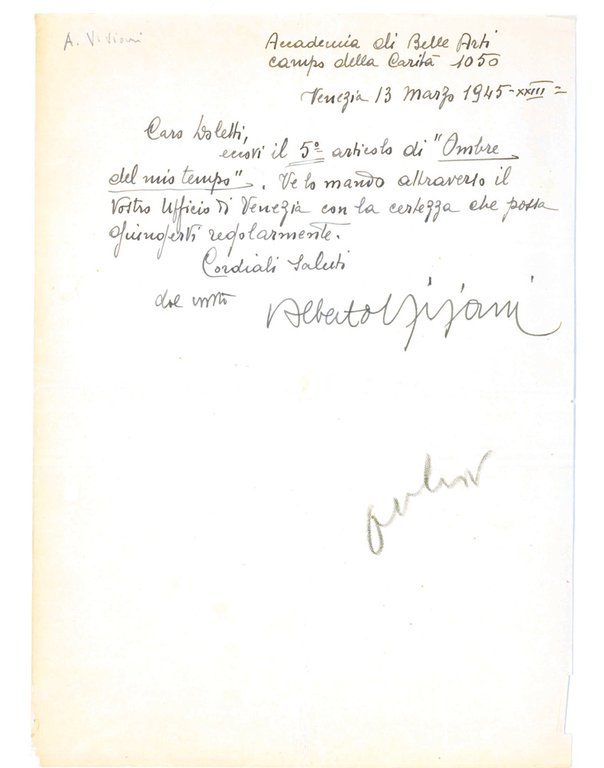 A. Viviani
Accademia di Belle Arti
campo della Carità 1050
Venezia 13 Marzo 1945-XXIII=
Caro Doletti,
eccovi il 5º articolo di "Ombre
del mio tempo". Ve lo mando attraverso il
Vostro Ufficio di Venezia con la certezza che possa
giungerti regolarmente.
Cordiali Saluti
dal vostro
Alberto Viviani